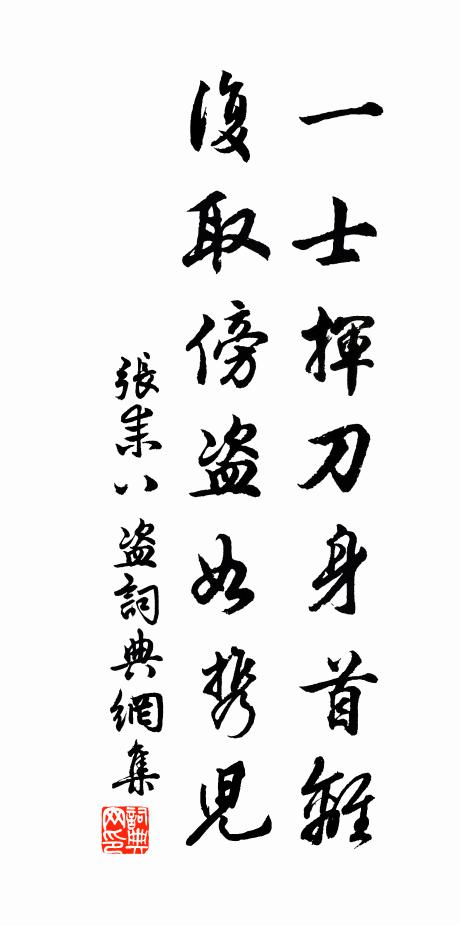 一士揮刀身首離
復取傍盗如携兒
張耒八盗詞典網集
詞典网印